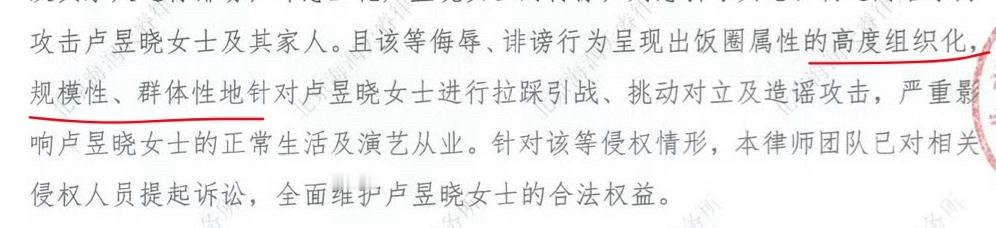 攻击卢昱晓女士及其家人。且该等侮辱、诽谤行为呈现出饭圈属性的高度组织化，
规模性、群体性地针对卢昱晓女士进行拉踩引战、挑动对立及造谣攻击，严重影
响卢昱晓女士的正常生活及演艺从业。针对该等侵权情形，本律师团队已对相关
侵权人员提起诉讼，全面维护卢昱晓女士的合法权益。